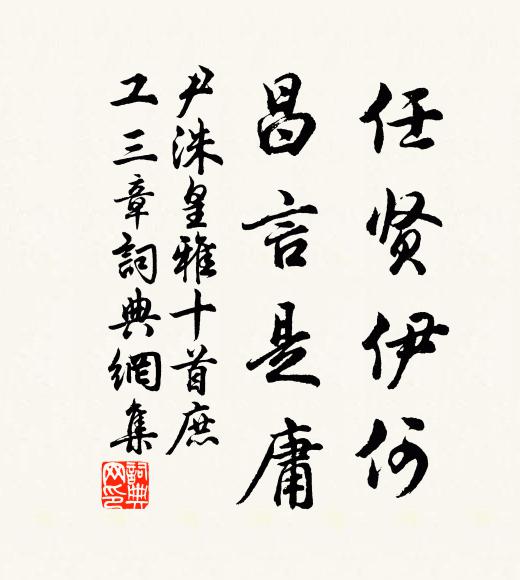 任贤伊何
昌言是庸
尹洙皇雅十首庶
工三章詞典網集
詞典网印